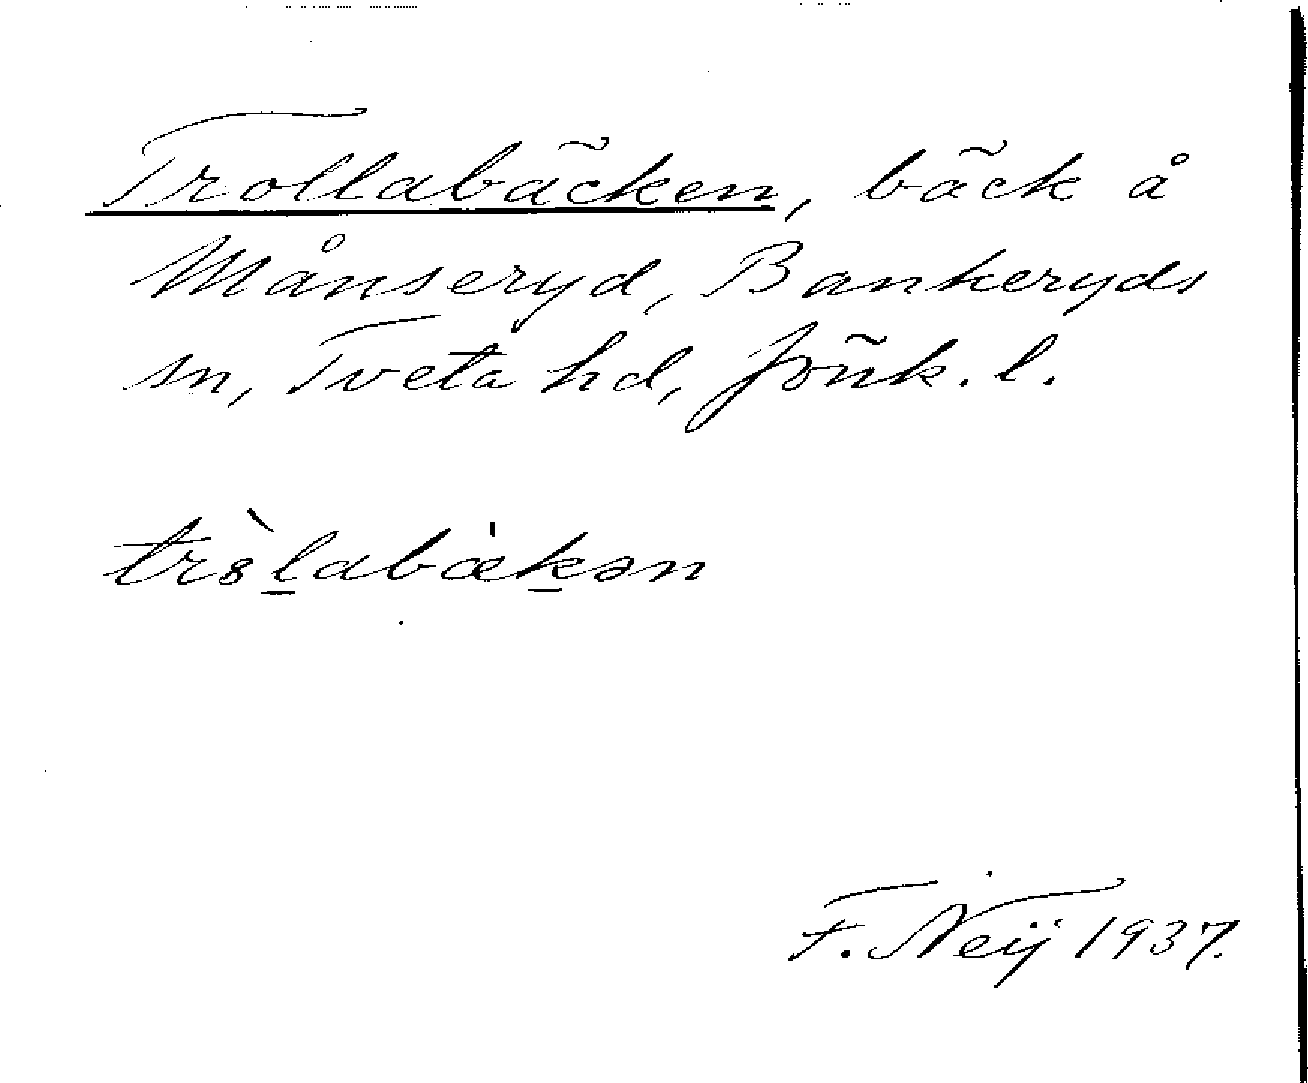 Trollabäcken, bäck å
Månseryd, Bankeryds
sn, Tveta hd, Jönk. l.
tròl̠abæ̍k̠ən
F. Neij 1937.